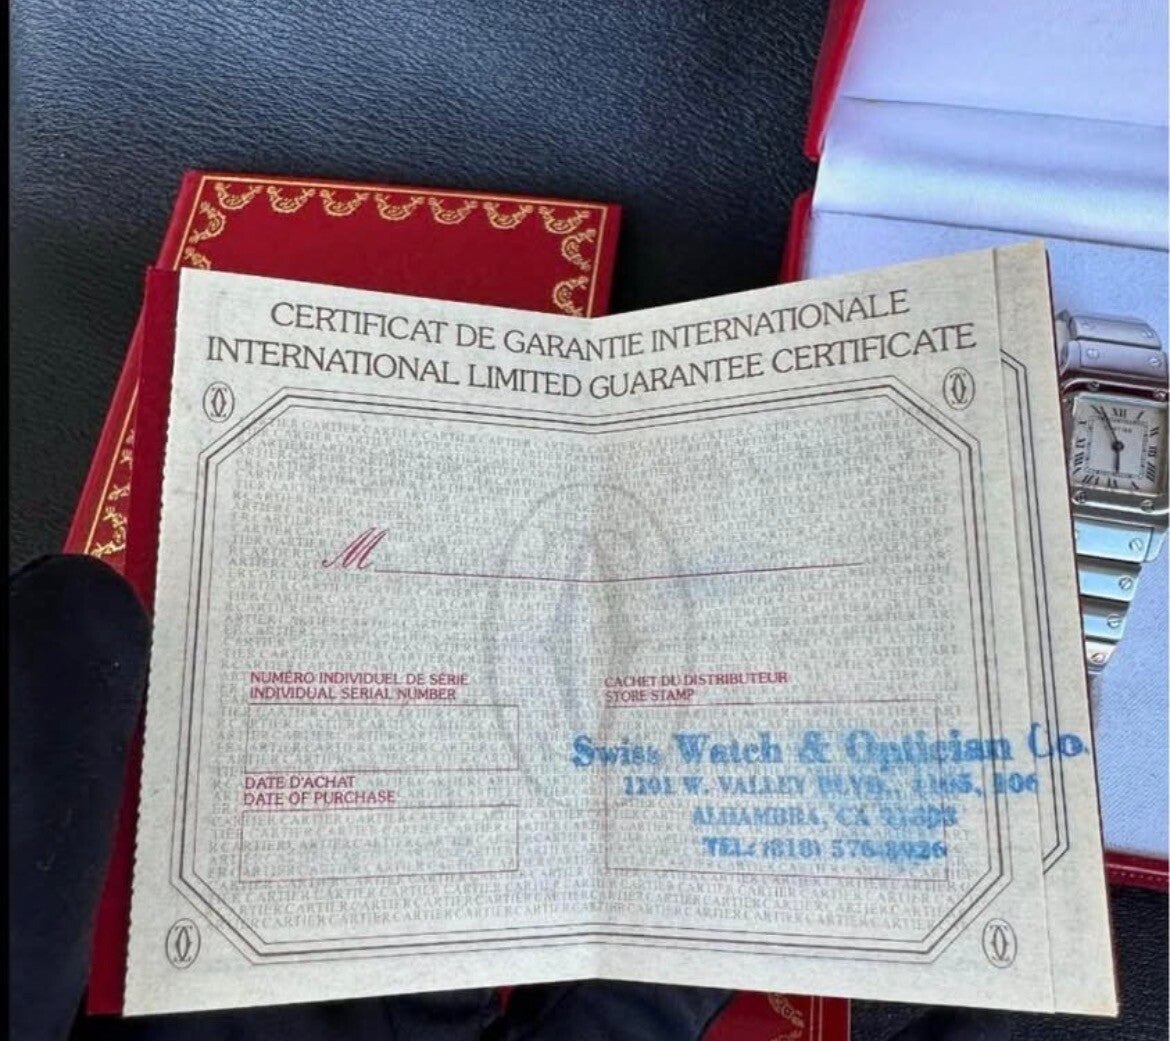 CERTIFICAT DE GARANTIE INTERNATIONALE
INTERNATIONAL LIMITED GUARANTEE CERTIFICATE
M
NUMÉRO INDIVIDUEL DE SÉRIE
INDIVIDUAL SERIAL NUMBER
CACHET DU DISTRIBUTEUR
STORE STAMP
Swiss Watch & Optician Co.
1101 W. VALLEY BLVD.,
ALHAMBRA, CA
TEL: (818) 576-8926
DATE D'ACHAT
DATE OF PURCHASE